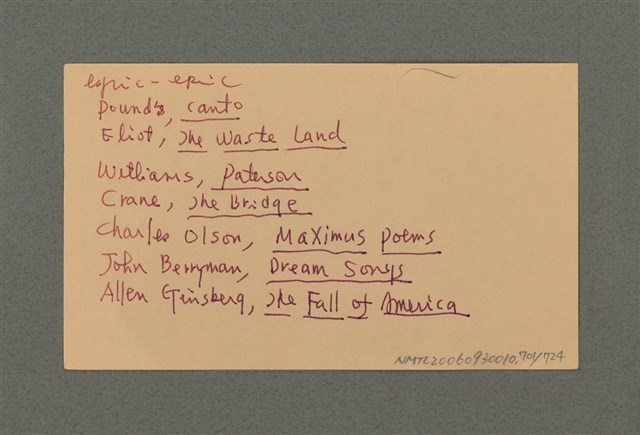 lyric - epic
Pound's, Canto
Eliot, The Waste Land
Williams, Paterson
Crane, The Bridge
Charles Olson, Maximus poems
John Berryman, Dream Songs
Allen Ginsberg, The Fall of America
NMTL20060930010,701/724